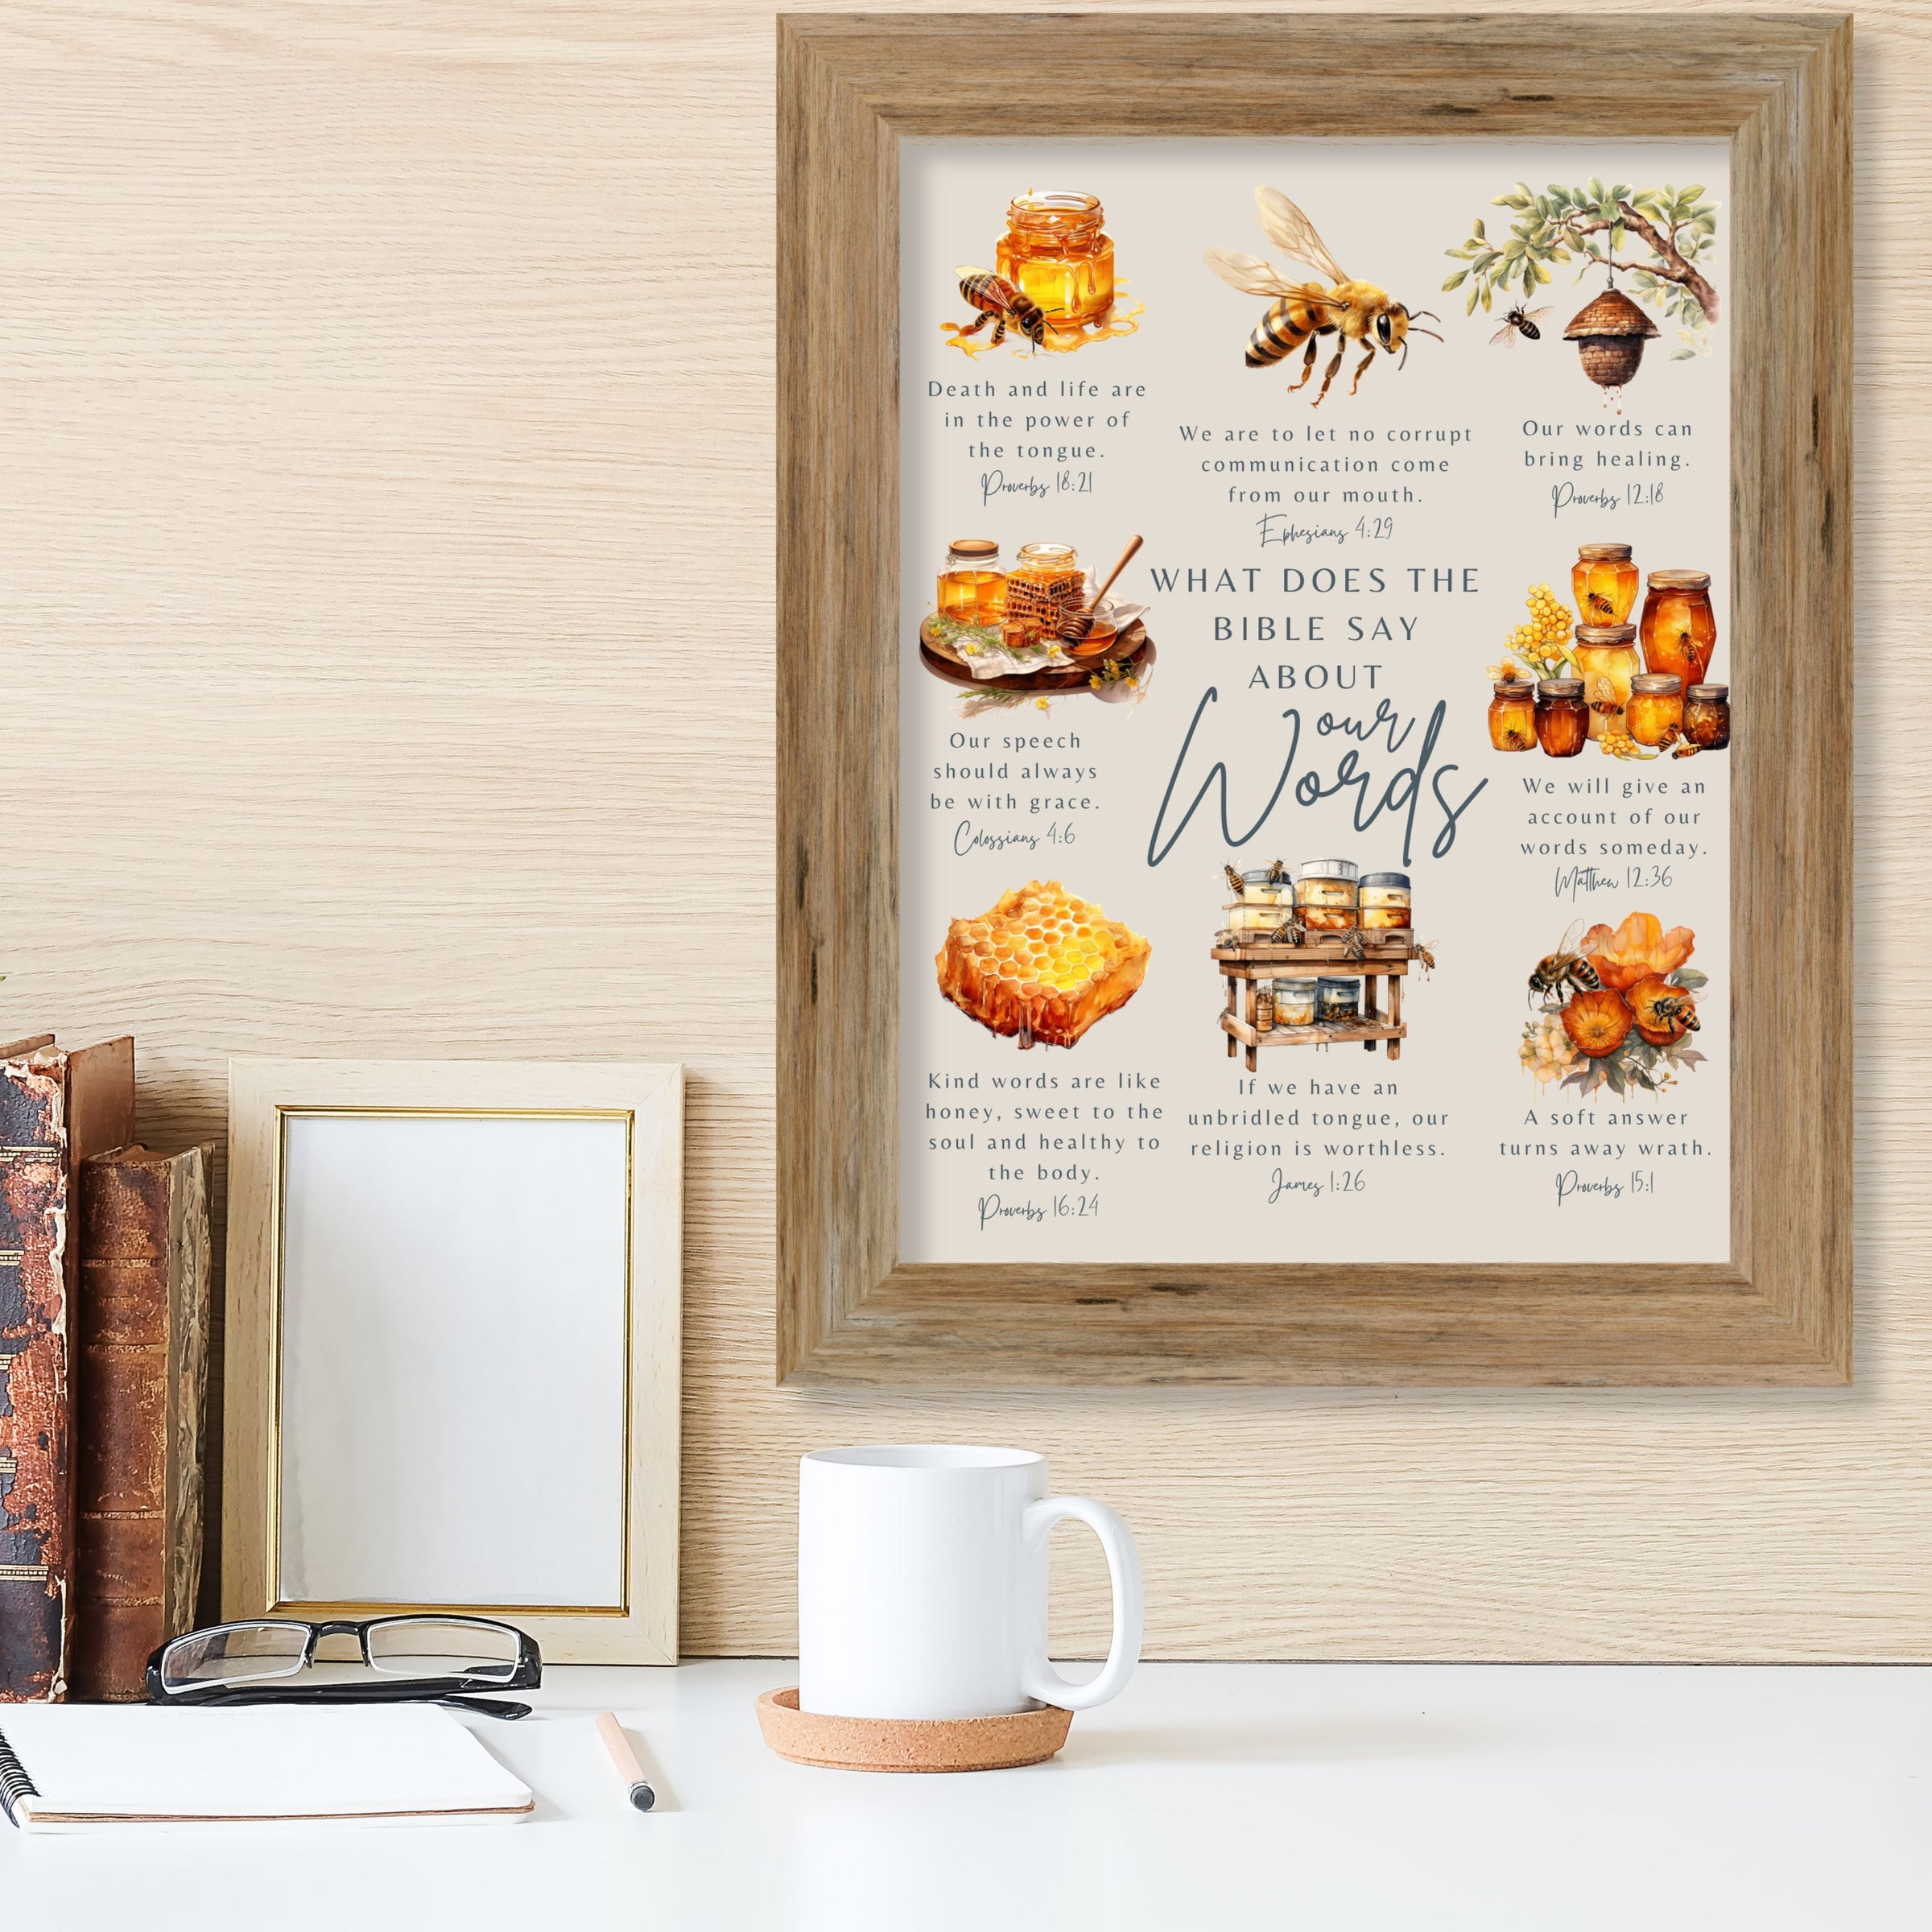 Death and life are
in the power of
the tongue.
Proverbs 18:21
We are to let no corrupt
communication come
from our mouth.
Ephesians 4:29
Our words can
bring healing.
Proverbs 12:18
WHAT DOES THE
BIBLE SAY
ABOUT
our
Words
Our speech
should always
be with grace.
Colossians 4:6
We will give an
account of our
words someday.
Matthew 12:36
Kind words are like
honey, sweet to the
soul and healthy to
the body.
Proverbs 16:24
If we have an
unbridled tongue, our
religion is worthless.
James 1:26
A soft answer
turns away wrath.
Proverbs 15:1